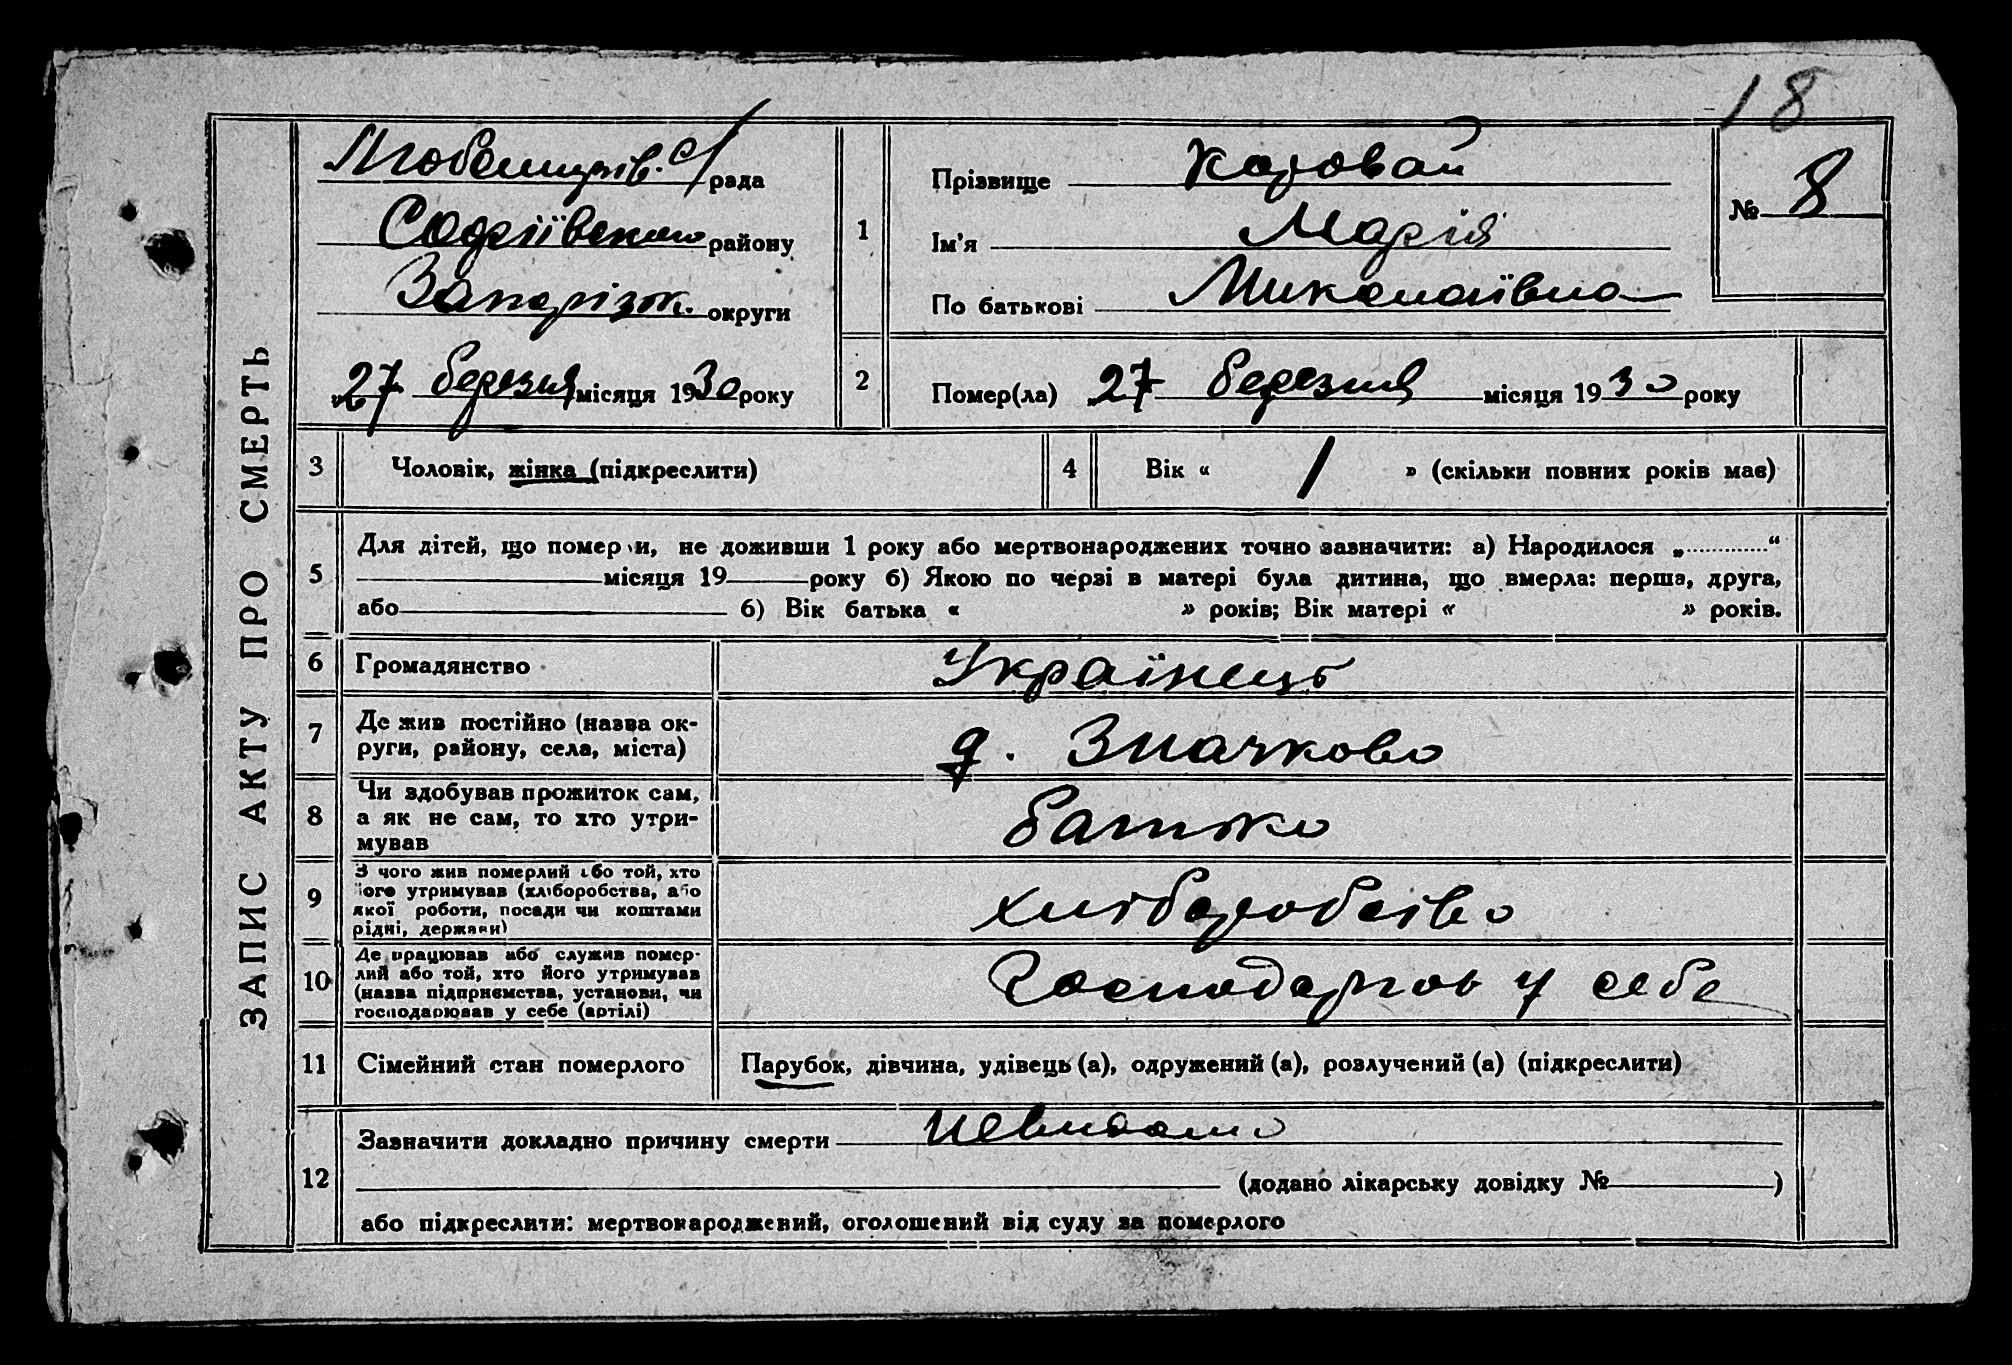 18
ЗАПИС АКТУ ПРО СМЕРТЬ
Любемирів. с/рада
Софіївського району
Запоріж. округи
„27 березня місяця 1930 року
1
Прізвище Коровай
Ім'я Марія
По батькові Миколаївна
№ 8
2
Помер(ла) „27 березня місяця 1930 року
3
Чоловік, жінка (підкреслити)
4
Вік « 1 » (скільки повних років має)
5
Для дітей, що померли, не доживши 1 року або мертвонароджених точно зазначити: а) Народилося „ “
місяця 19 року б) Якою по черзі в матері була дитина, що вмерла: перша, друга,
або б) Вік батька « » років; Вік матері « » років.
6
Громадянство
Українець
7
Де жив постійно (назва ок-
руги, району, села, міста)
д. Значково
8
Чи здобував прожиток сам,
а як не сам, то хто утри-
мував
батько
9
З чого жив померлий або той, хто
його утримував (хліборобства, або
якої роботи, посади чи коштами
рідні, держави)
хліборобство
10
Де працював або служив помер-
лий або той, хто його утримував
(назва підприємства, установи, чи
господарював у себе (артілі)
Господарюв у себе
11
Сімейний стан померлого
Парубок, дівчина, удівець (а), одружений (а), розлучений (а) (підкреслити)
12
Зазначити докладно причину смерти невидомо
(додано лікарську довідку № )
або підкреслити: мертвонароджений, оголошений від суду за померлого